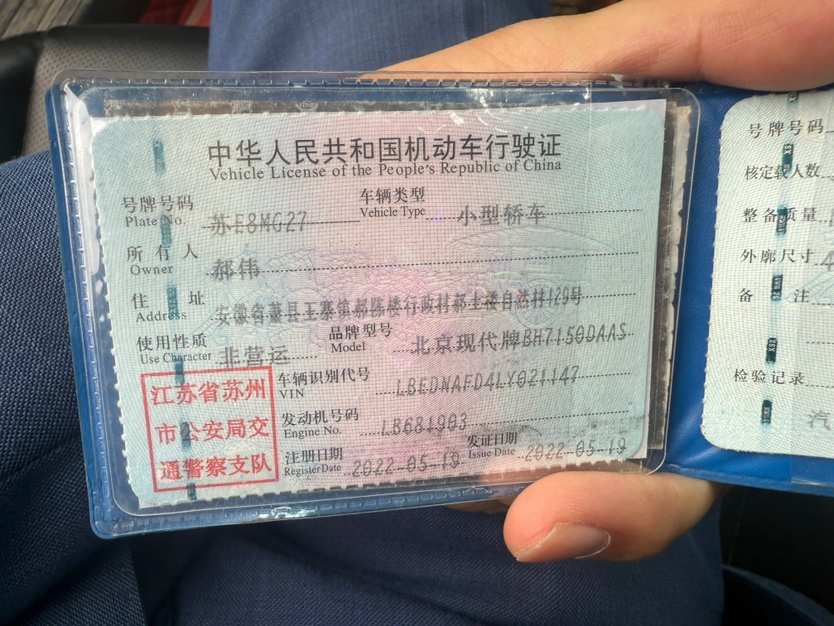 中华人民共和国机动车行驶证
Vehicle License of the People's Republic of China
号牌号码 苏E8MG27 车辆类型 小型轿车
Plate No. Vehicle Type
所有人 郝伟
Owner
住址 安徽省萧县王寨镇郝陈楼行政村郝土楼自然村129号
Address
使用性质 非营运 品牌型号 北京现代牌BH7150DAAS
Use Character Model
江苏省苏州
市公安局交
通警察支队
车辆识别代号 LBEDNAFD4LY021147
VIN
发动机号码 LB681903
Engine No.
注册日期 2022-05-19 发证日期 2022-05-19
Register Date Issue Date
号牌号码
核定载人数
整备质量
外廓尺寸 4
备注
检验记录
汽